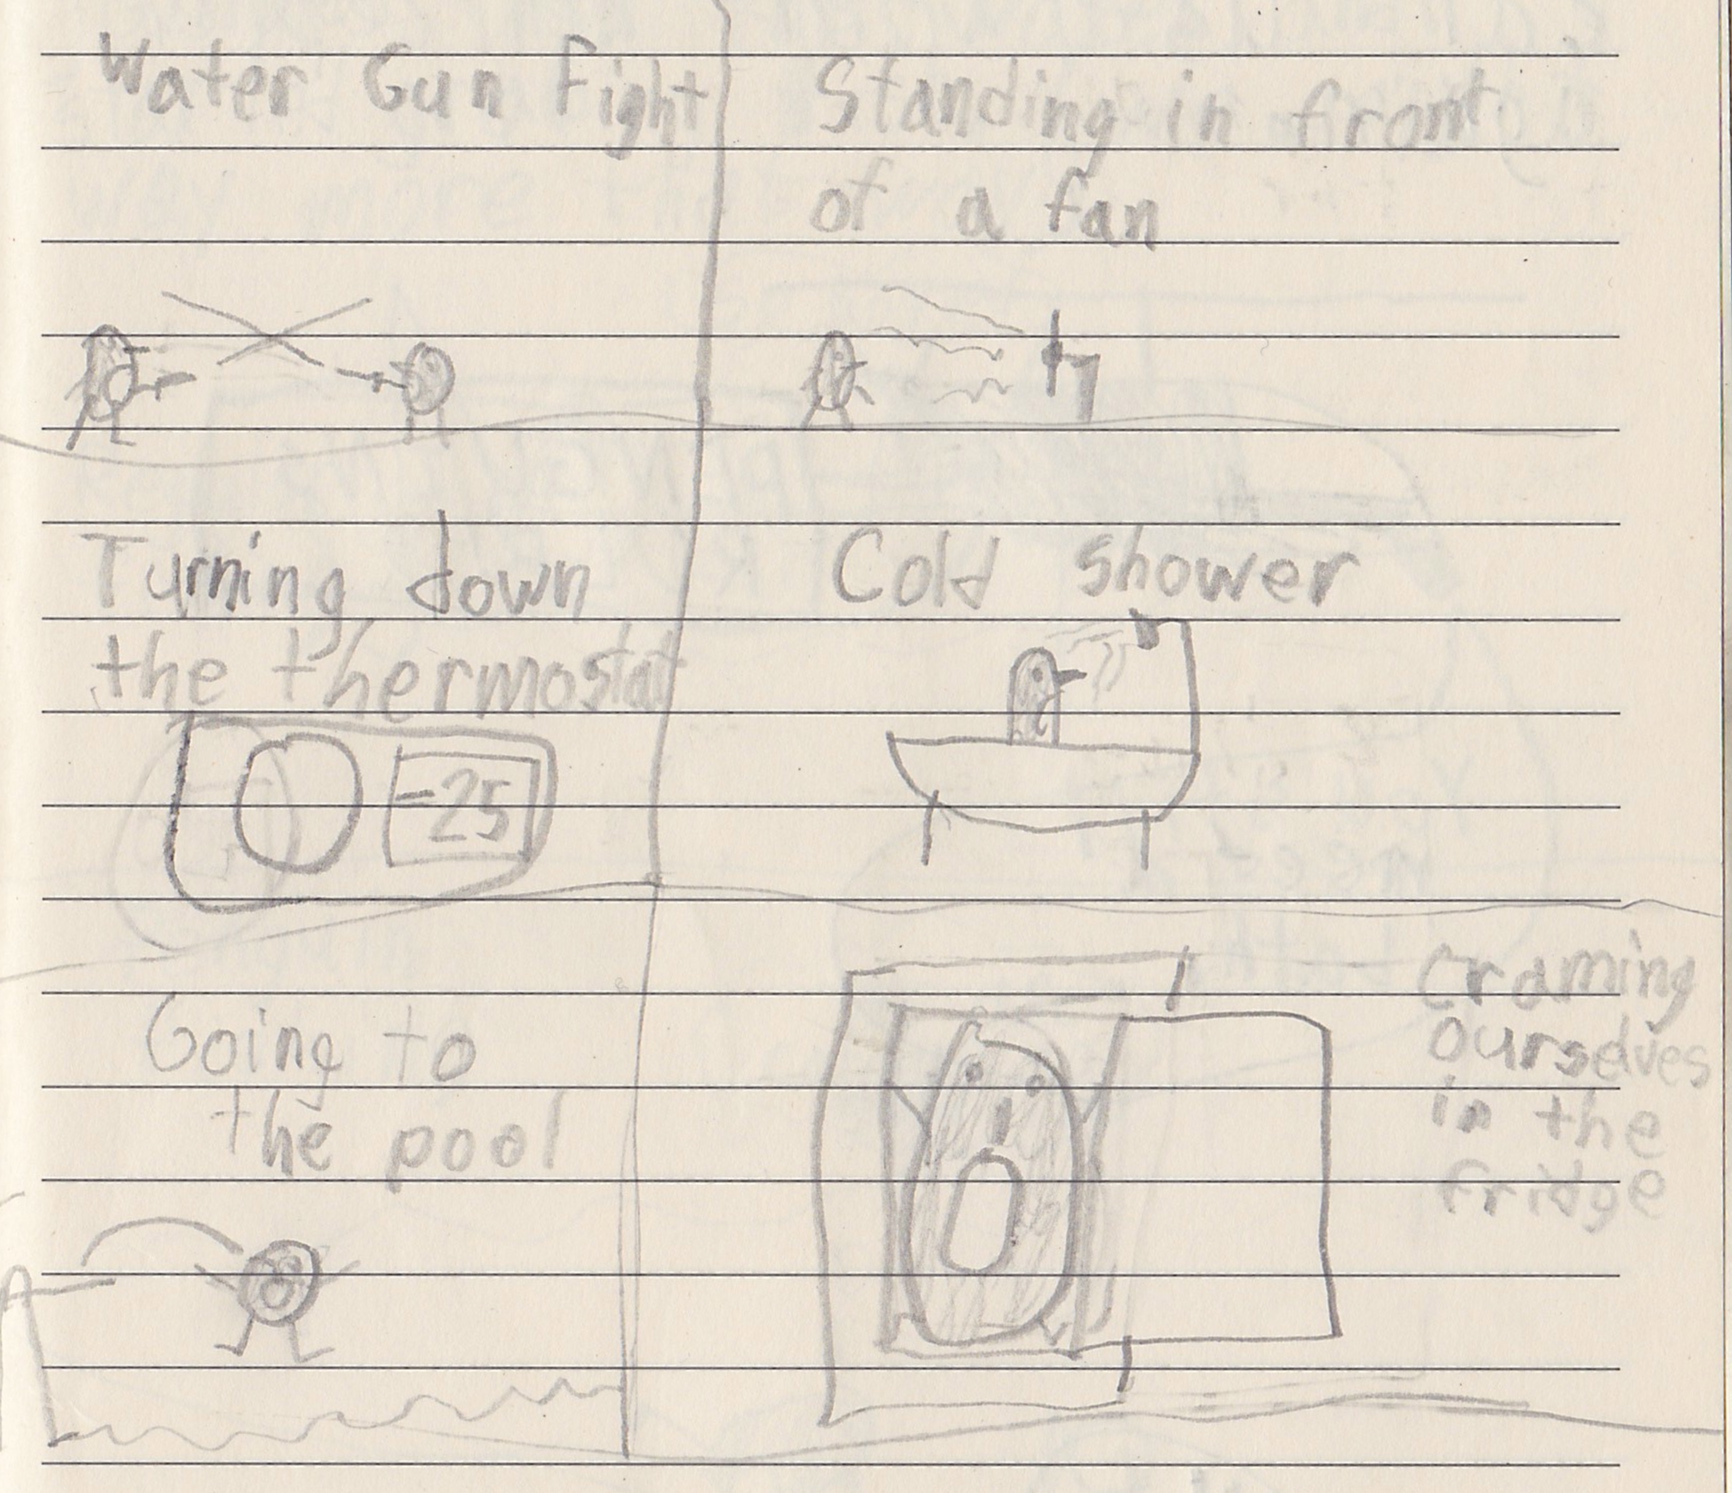 Water Gun Fight
Standing in front
of a fan
Turning down
the thermostat
-25
Cold shower
Going to
the pool
Craming
ourselves
in the
fridge